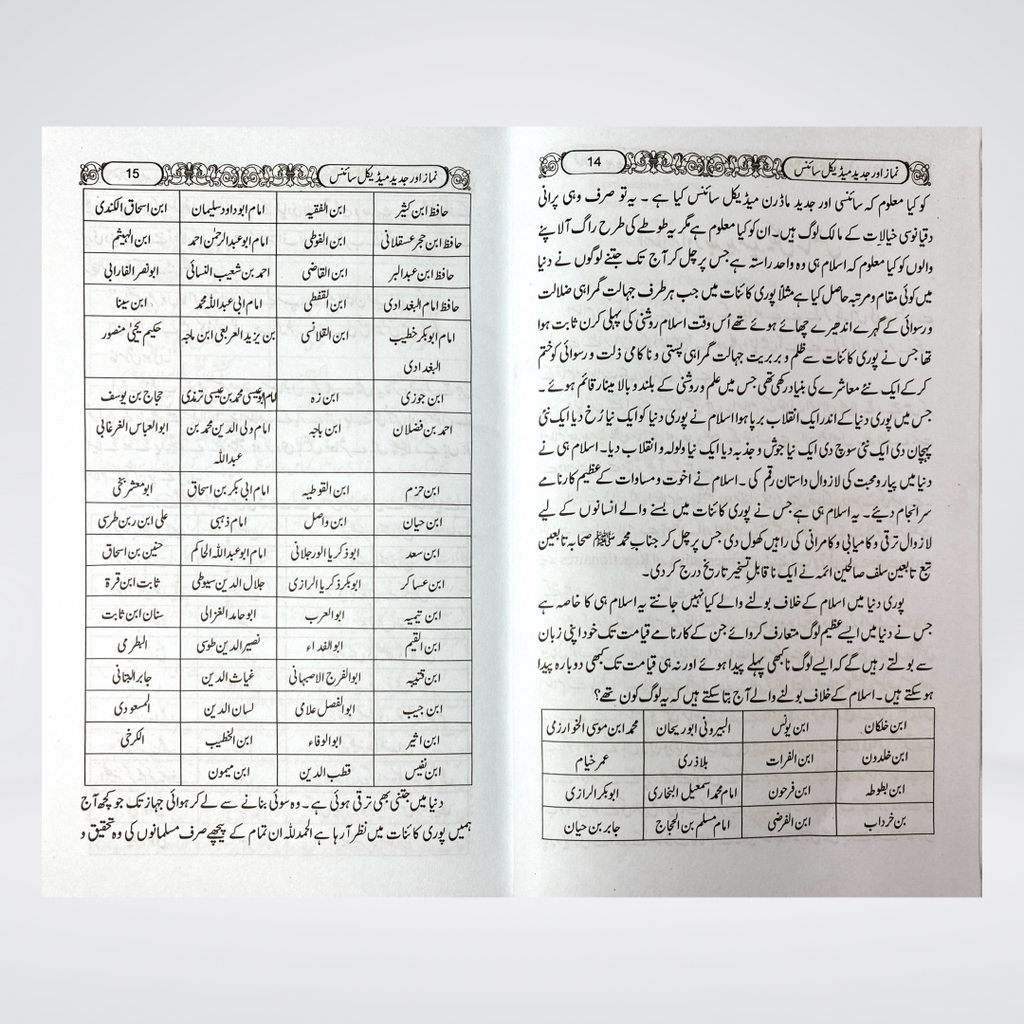 نماز اور جدید میڈیکل سائنس 14
کو کیا معلوم کہ سائنسی اور جدید ماڈرن میڈیکل سائنس کیا ہے ۔ یہ تو صرف وہی پرانی
دقیانوسی خیالات کے مالک لوگ ہیں۔ ان کو کیا معلوم ہے مگر یہ طوطے کی طرح راگ آلاپنے
والوں کو کیا معلوم کہ اسلام ہی وہ واحد راستہ ہے جس پر چل کر آج تک جتنے لوگوں نے دنیا
میں کوئی مقام و مرتبہ حاصل کیا ہے مثلاً پوری کائنات میں جب ہر طرف جہالت گمراہی ضلالت
و رسوائی کے گہرے اندھیرے چھائے ہوئے تھے اُس وقت اسلام روشنی کی پہلی کرن ثابت ہوا
تھا جس نے پوری کائنات سے ظلم و بربریت جہالت گمراہی پستی و ناکامی ذلت و رسوائی کو ختم
کر کے ایک نئے معاشرے کی بنیاد رکھی تھی جس میں علم و روشنی کے بلند و بالا مینار قائم ہوئے ۔
جس میں پوری دنیا کے اندر ایک انقلاب برپا ہوا اسلام نے پوری دنیا کو ایک نیا رُخ دیا ایک نئی
پہچان دی ایک نئی سوچ دی ایک نیا جوش و جذبہ دیا ایک نیا ولولہ و انقلاب دیا۔ اسلام ہی نے
دنیا میں پیار و محبت کی لازوال داستان رقم کی ۔ اسلام نے اخوت و مساوات کے عظیم کارنامے
سرانجام دیئے ۔ یہ اسلام ہی ہے جس نے پوری کائنات میں بسنے والے انسانوں کے لیے
لازوال ترقی و کامیابی و کامرانی کی راہیں کھول دی جس پر چل کر جناب محمد ﷺ صحابہ تابعین
تبع تابعین سلف صالحین ائمہ نے ایک ناقابلِ تسخیر تاریخ درج کر دی۔
پوری دنیا میں اسلام کے خلاف بولنے والے کیا نہیں جانتے یہ اسلام ہی کا خاصہ ہے
جس نے دنیا میں ایسے عظیم لوگ متعارف کروائے جن کے کارنامے قیامت تک خود اپنی زبان
سے بولتے رہیں گے کہ ایسے لوگ نا کبھی پہلے پیدا ہوئے اور نہ ہی قیامت تک کبھی دوبارہ پیدا
ہو سکتے ہیں ۔ اسلام کے خلاف بولنے والے آج بتا سکتے ہیں کہ یہ لوگ کون تھے؟
ابن خلکان ابن یونس البیرونی ابوریحان محمد ابن موسی الخوارزمی
ابن خلدون ابن الفرات بلاذری عمر خیام
ابن بطوطہ ابن فرحون امام محمد اسمعیل البخاری ابوبکر الرازی
بن خرداب ابن الفرضی امام مسلم بن الحجاج جابر بن حیان
نماز اور جدید میڈیکل سائنس 15
حافظ ابن کثیر ابن الفقیہ امام ابوداود سلیمان ابن اسحاق الکندی
حافظ ابن حجر عسقلانی ابن الفوطی امام ابوعبدالرحمٰن احمد ابن الہیثم
حافظ ابن عبدالبر ابن القاضی احمد بن شعیب النسائی ابونصر الفارابی
حافظ امام البغدادی ابن القفطی امام ابی عبداللہ محمد ابن سینا
امام ابوبکر خطیب ابن القلانسی بن یزید العربعی ابن ماجہ حکیم یحیٰی منصور
البغدادی
ابن جوزی ابن زہ امام ابوعیسی محمد بن عیسی ترمذی حجاج بن یوسف
احمد بن فضلان ابن باجہ امام ولی الدین محمد بن ابوالعباس الغرغابی
عبداللہ
ابن حزم ابن القوطیہ امام ابی بکر بن اسحاق ابومعشر بلخی
ابن حیان ابن واصل امام ذہبی علی ابن ربن طرسی
ابن سعد ابوذکریا الورجلانی امام ابوعبداللہ الحاکم حنین بن اسحاق
ابن عساکر ابوبکر ذکریا الرازی جلال الدین سیوطی ثابت ابن قرۃ
ابن تیمیہ ابوالعرب ابوحامد الغزالی سنان ابن ثابت
ابن القیم ابوالفداء نصیر الدین طوسی البطرمی
ابن قتیبہ ابوالفرج الاصبہانی غیاث الدین جابر البتانی
ابن جیب ابوالفصل علامی لسان الدین المسعودی
ابن اثیر ابوالوفاء ابن الخطیب الکرخی
ابن نفیس قطب الدین ابن میمون
دنیا میں جتنی بھی ترقی ہوئی ہے ۔ وہ سوئی بنانے سے لے کر ہوائی جہاز تک جو کچھ آج
ہمیں پوری کائنات میں نظر آ رہا ہے الحمدللہ ان تمام کے پیچھے صرف مسلمانوں کی وہ تحقیق و